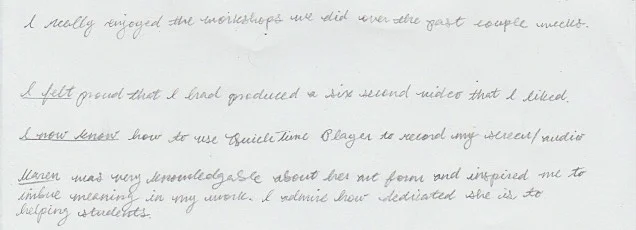 I really enjoyed the workshops we did over the past couple weeks.
I felt proud that I had produced a six second video that I liked.
I now know how to use Quicktime Player to record my screen/audio
Maren was very knowledgable about her art form and inspired me to
imbue meaning in my work. I admire how dedicated she is to
helping students.